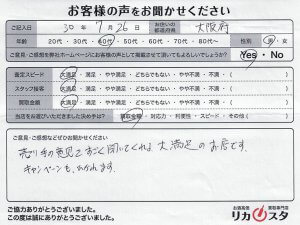 お客様の声をお聞かせください
ご記入日 30年 7月 26日 お住いの都道府県 大阪府
年齢 20代・30代・40代・50代・60代・70代・80代～ 性別 男・女
ご意見・ご感想を弊社ホームページにお客様の声として掲載させて頂いてもよろしいでしょうか？ Yes・No
査定スピード 大満足・満足・やや満足・どちらでもない・やや不満・不満
スタッフ接客 大満足・満足・やや満足・どちらでもない・やや不満・不満
買取金額 大満足・満足・やや満足・どちらでもない・やや不満・不満
当店をお選びいただきました決め手は？ 買取金額・対応力・利便性・スピード・その他（ ）
ご意見・ご感想などぜひお聞かせください。
売り手の意見をよく聞いてくれる大満足のお店です。
キャンペーンも
ご協力ありがとうございました。
この度は誠にありがとうございました。
お酒高価買取専門店
リカスタ